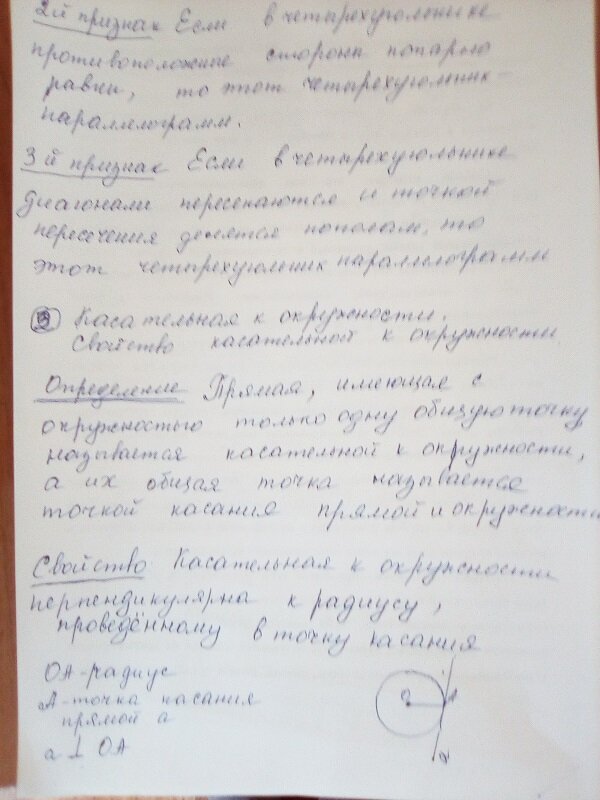 2й признак Если в четырехугольнике
противоположные стороны попарно
равны, то этот четырехугольник -
параллелограмм.
3й признак Если в четырехугольнике
диагонали пересекаются и точкой
пересечения делятся пополам, то
этот четырехугольник параллелограмм
3 Касательная к окружности.
Свойство касательной к окружности
Определение Прямая, имеющая с
окружностью только одну общую точку
называется касательной к окружности,
а их общая точка называется
точкой касания прямой и окружности
Свойство Касательная к окружности
перпендикулярна к радиусу,
проведённому в точку касания
OA - радиус
A - точка касания
прямой a
a ⊥ OA
O A
a